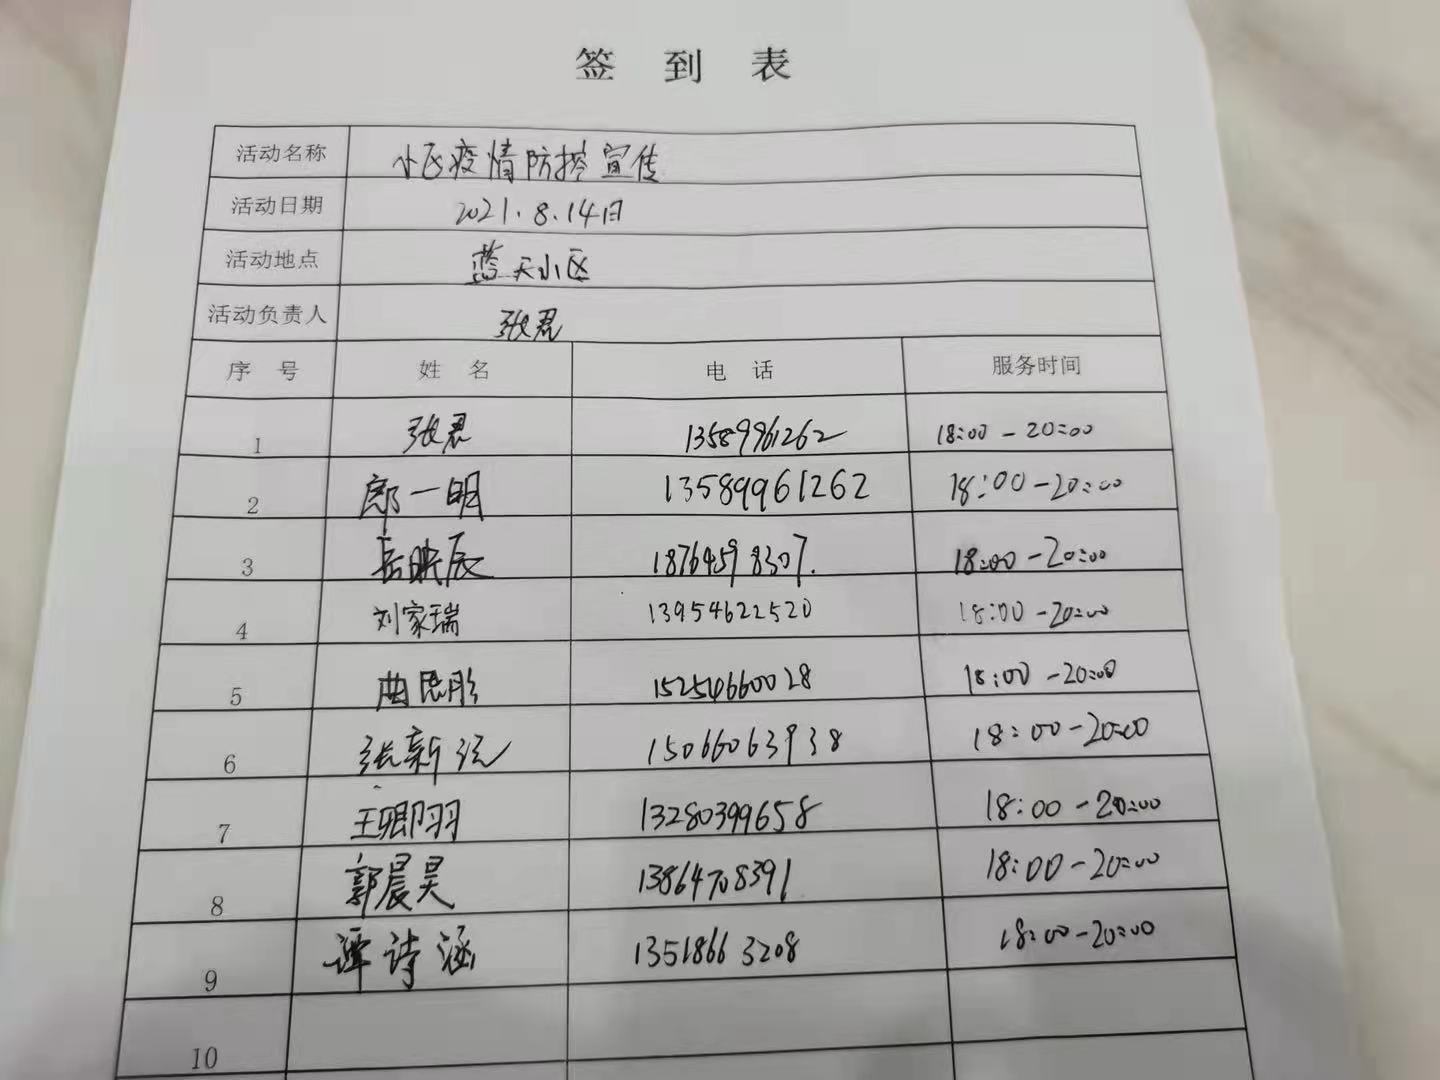 签 到 表
活动名称 小区疫情防控宣传
活动日期 2021.8.14日
活动地点 蓝天小区
活动负责人 张君
序 号 姓 名 电 话 服务时间
1 张君 13589961262 18:00-20:00
2 郎一明 13589961262 18:00-20:00
3 岳晄辰 18764598307. 18:00-20:00
4 刘家瑞 13954622520 18:00-20:00
5 曲思彤 15254660028 18:00-20:00
6 张新 15066063938 18:00-20:00
7 王卿羽 13280399658 18:00-20:00
8 郭晨昊 13864708391 18:00-20:00
9 谭诗涵 13518663208 18:00-20:00
10